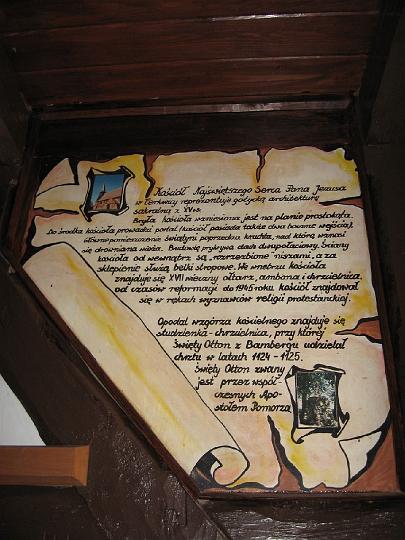 Kościół Najświętszego Serca Pana Jezusa
w Cerkwicy reprezentuje gotycką architekturę
sakralną z XV w.
Bryła kościoła wzniesiona jest na planie prostokąta.
Do środka kościoła prowadzi portal (kościół posiada także dwa boczne wejścia),
główne pomieszczenie świątyni poprzedza kruchta, nad którą wznosi
się drewniana wieża. Budowlę przykrywa dach dwupołaciowy. Ściany
kościoła od wewnątrz są rozrzeźbione niszami, a za
sklepienie służą belki stropowe. We wnętrzu kościoła
znajduje się XVI wieczny ołtarz, ambona i chrzcielnica.
od czasów reformacji do 1945 roku kościół znajdował
się w rękach wyznawców religii protestanckiej.
Opodal wzgórza kościelnego znajduje się
studzienka - chrzcielnica, przy której
Święty Otton z Bambergu udzielał
chrztu w latach 1124 - 1125.
Święty Otton zwany
jest przez współ-
czesnych Apo-
stołem Pomorza